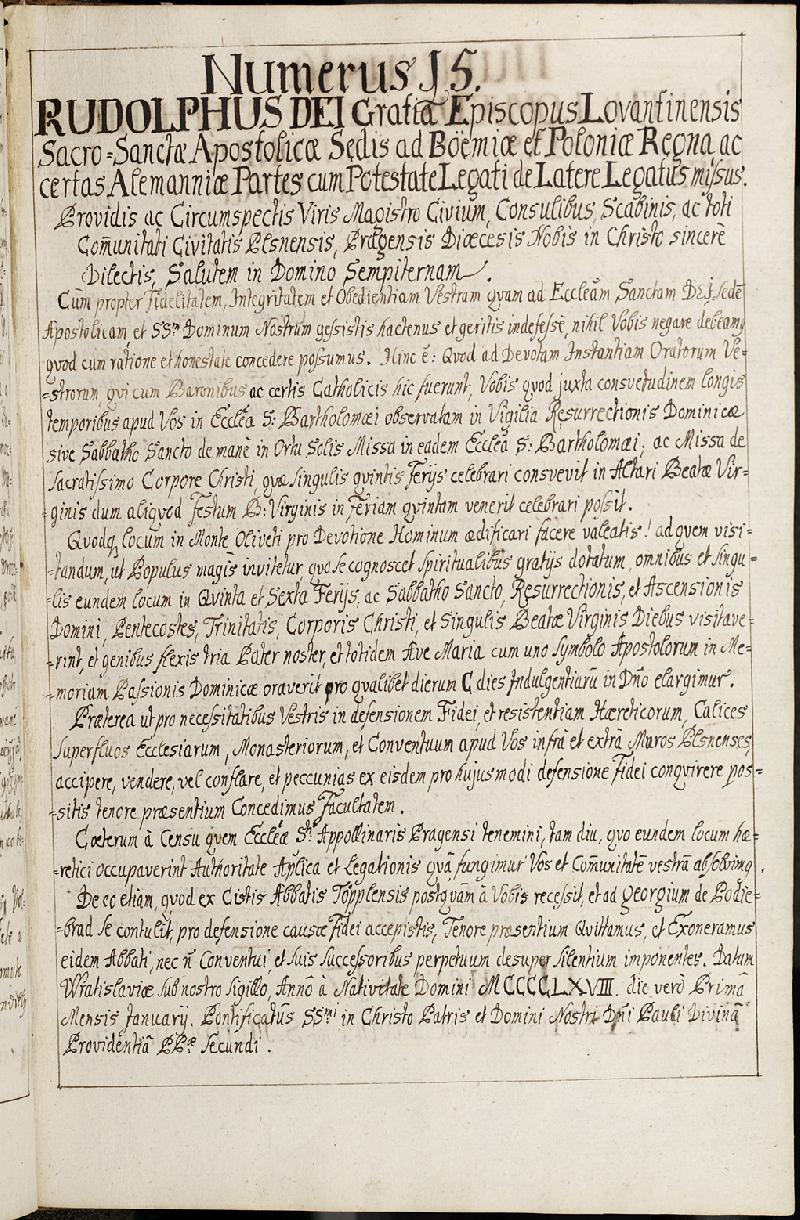 Numerus J5.
RUDOLPHUS DEI Gratiâ Episcopus Lovantinensis
Sacro=Sanctæ Apostolicæ Sedis ad Böemiæ et Poloniæ Regna ac
certas Alemanniæ Partes cum Potestate Legati de Latere Legatus missus.
Providis ac Circumspectis Viris Magistro Civium, Consulibus, Scabinis, ac toti
Com̄unitati Civitatis Plsnensis, Prægensis Diœcesis Nobis in Christo sincerè
Dilectis, Salutem in Domino Sempiternam.
Cùm propter Fidelitatem, Integritatem et Obedientiam Vestram quam ad Eccleam Sanctam DEJ, Sedē
Apostolicam et SSm̄ Dominum Nostrum gessistis hactenus et geritis indefessè, nihil Vobis negare debeamq
quod cum ratione et honestate concedere possumus. Hinc ē: Quod ad Devotam Instantiam Oratorum Ve=
=strorum, qui cum Baronibus ac certis Catholicis hic fuerunt, Vobis quod juxta consvetudinem longis
temporibus apud Vos in Ecclea S: Bartholomæi observatam in Vigilia Resurrectionis Dominicæ
sive Sabbatho Sancto de manè in Ortu Solis Missa in eadem Ecclea S: Bartholomæi, ac Missa de
Sacratissimo Corpore Christi, quæ singulis quintis Ferijs celebrari consvevit in Altari Beatæ Vir=
=ginis dum aliquod Festum B: Virginis in Feriam quintam venerit celebrari possit.
Quodq, locum in Monte Oliveti pro Devotione Hominum ædificari facere valeatis! ad quem visi=
=tandum, ut Populus magis invitetur quo se cognoscet Spiritualibus gratijs dotatum, omnibus et singu=
=lis eundem locum in Quinta et Sexta Ferijs, ac Sabbatho Sancto, Resurrectionis, et Ascensionis
Domini, Pentecostes, Trinitatis, Corporis Christi, et Singulis Beatæ Virginis Diebus visitave=
=rint, et genibus flexis tria Pater noster, et totidem Ave Maria cum uno Symbolo Apostolorum in Me=
=moriam Passionis Dominicæ oraverit pro qualibet dierum C, dies Indulgentiarū in Dnō elargimur.
Præterea ut pro necessitatibus Vestris in defensionem Fidei, et resistentiam Hæreticorum, Calices
Superfluos Ecclesiarum, Monasteriorum, et Conventuum apud Vos infrà et extrà Muros Plsnenses,
accipere, vendere, vel conflare, et peccunias ex eisdem pro hujusmodi defensione Fidei conquirere pos=
=sitis tenore præsentium Concedimus Facultatem.
Cœterum à Censu quem Eccleæ Sti Appollinaris Pragensi tenemini, tam diu, quo eundem locum hæ=
=retici occupaverint Authoritate Aplica et Legationis quâ fungimur Vos et Com̄unitatē vestrā absolvimq.
De eo etiam, quod ex Cistis Abbatis Töpplensis postquam à Vobis recessit, et ad Georgium de Podie=
=brad se contulit, pro defensione causæ Fidei accepistis, Tenore præsentium Quittamus, et Exoneramus
eidem Abbati, nec n̄ Conventui, et suis Successoribus perpetuum desuper silentium imponentes. Datam
Wratislaviæ sub nostro Sigillo, Annō à Nativitate Domini MCCCCLXVIII. die verò Primâ
Mensis Januarij. Pontificatûs SSmi in Christo Patris et Domini Nostri Dn̄i Pauli Divinâ
Providentiâ PPæ Secundi.